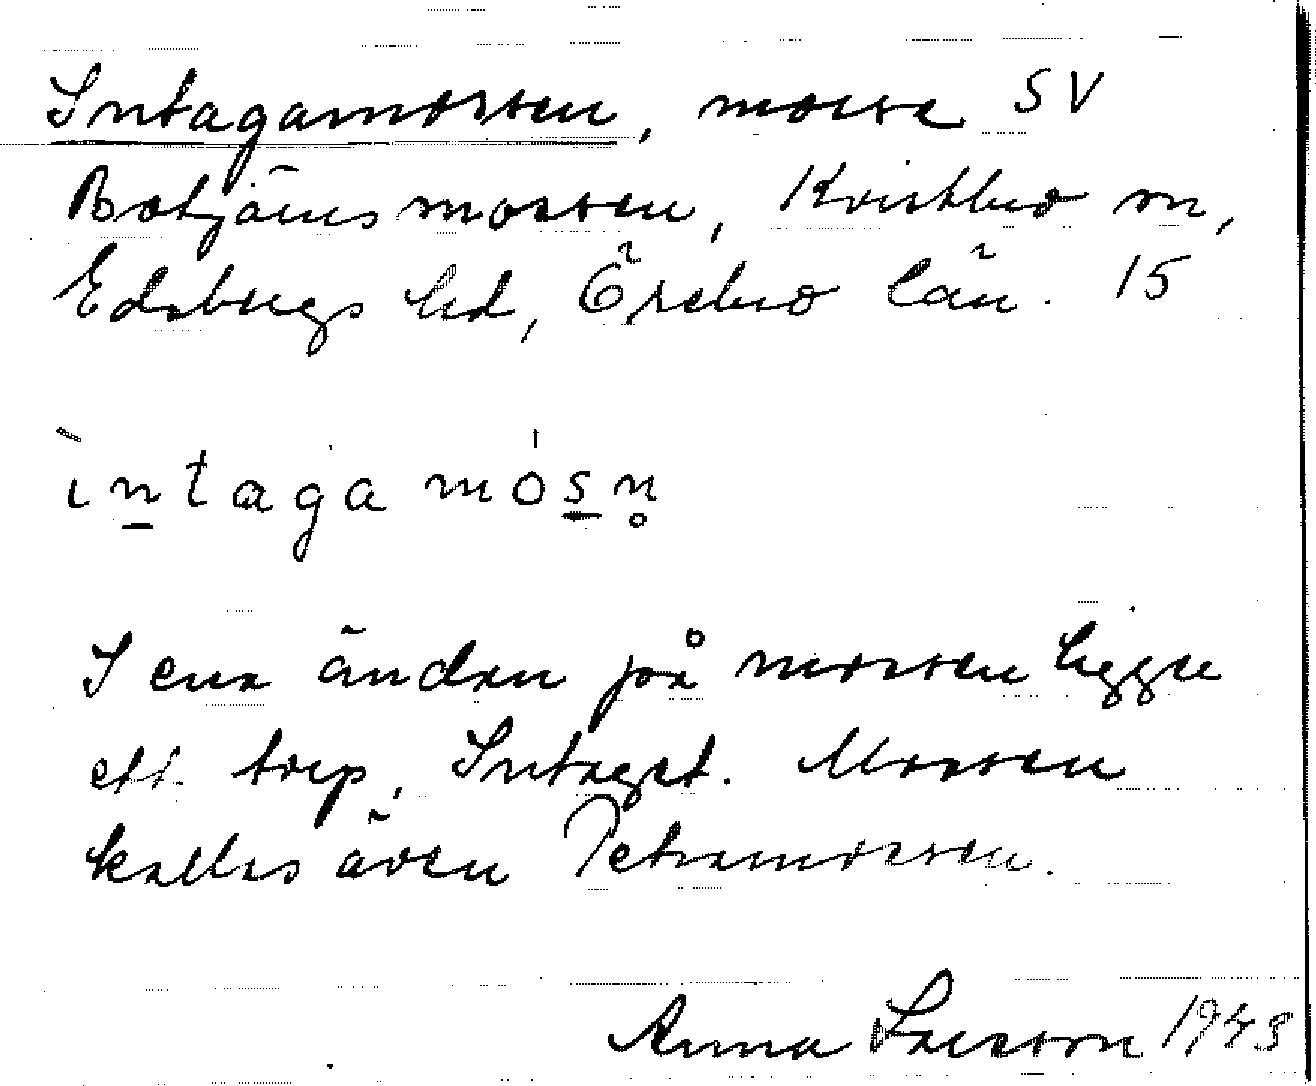 Intagamossen, mosse SV
Botjärnsmossen, Kvistbro sn,
Edsbergs hd, Örebro län. 15
ìntagamósn̥
I ena ändan på mossen ligger
ett torp, Intaget. Mossen
kallas även Petramossen.
Anna Larsson 1943